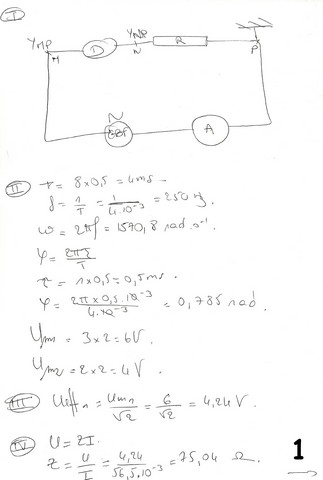 I
YMP
D
YNP
R
M
N
P
GBF
A
II T = 8 x 0,5 = 4 ms
f = 1/T = 1/4.10⁻³ = 250 Hz.
ω = 2πf = 1570,8 rad.s⁻¹
φ = 2πτ/T
τ = 1 x 0,5 = 0,5 ms.
φ = 2π x 0,5.10⁻³/4.10⁻³ = 0,785 rad.
Um1 = 3 x 2 = 6V
Um2 = 2 x 2 = 4 V.
III Ueff1 = Um1/√2 = 6/√2 = 4,24 V.
IV U = ZI.
Z = U/I = 4,24/56,5.10⁻³ = 75,04 Ω.
1